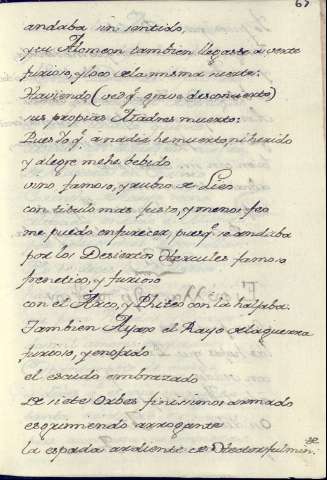 63
andaba sin sentido
y cu Alomeon tambien llegasse a verte
furioso, y loco de la misma suerte.
Haviendo (ved q̃ grave desconcierto)
sus propias Madres muerto:
Pues Yo q̃ a nadie he muerto ni herido
y alegre mehe bebido
vino famoso, y rubio de Lieo
con titulo mas justo, y menos feo
me puedo enfurecer, pues q̃ se andaba
por los Desiertos Hercules famoso
frenetico, y furioso
con el Arco, y Phiteo con la haljaba.
Tambien Ayax el Rayo de la guerra
furioso, y enojado
el escudo embrazado
de siete Orbes finissimos armado
esgrimendo arrogante
la espada ardiente de Hector fulmin.
se